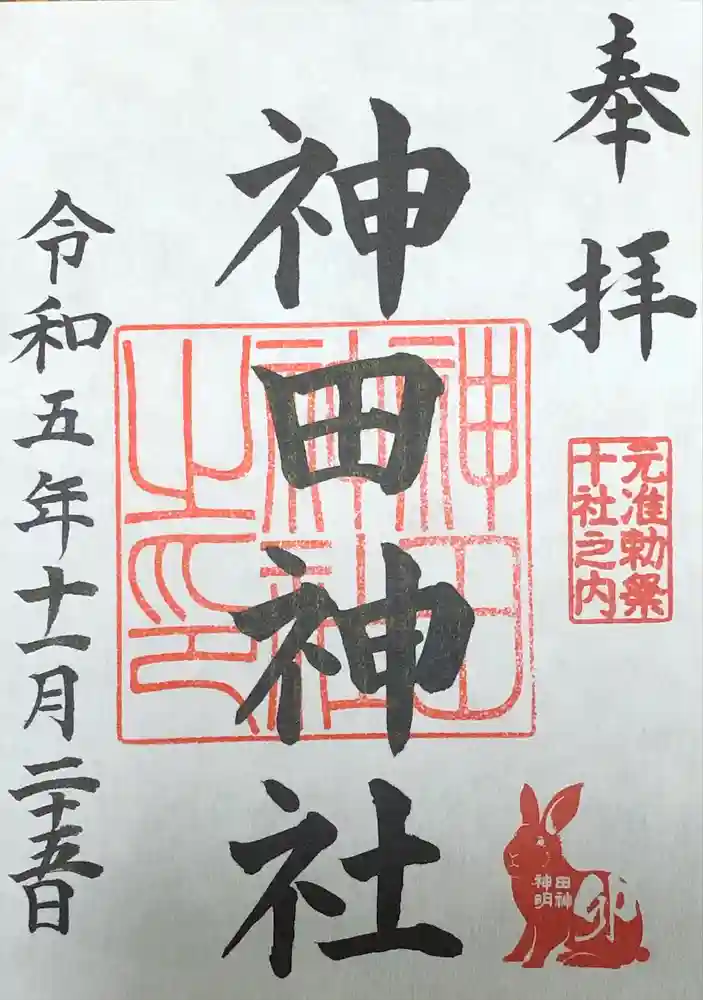 奉拝
元准勅祭
十社之内
神田神社
神田神社之印
田神
神明
卯
令和五年十一月二十五日